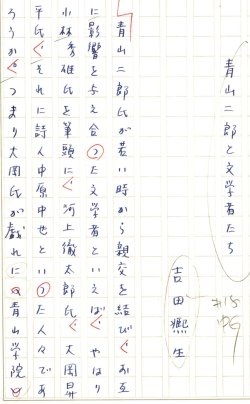 青山二郎と文学者たち
吉田凞生
青山二郎氏が若い時から親交を結び、お互
に影響を与え合った文学者といえば、やはり
小林秀雄氏を筆頭に、河上徹太郎氏、大岡昇
平氏、それに詩人中原中也といった人々であ
ろうか。つまり大岡氏が戯れに「青山学院」